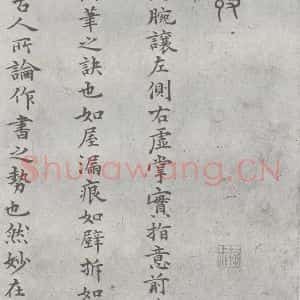 腕讓左側右虛掌實指意前
筆之訣也如屋漏痕如壁拆如
古人所論作書之勢也然妙在
Shufawang.CN